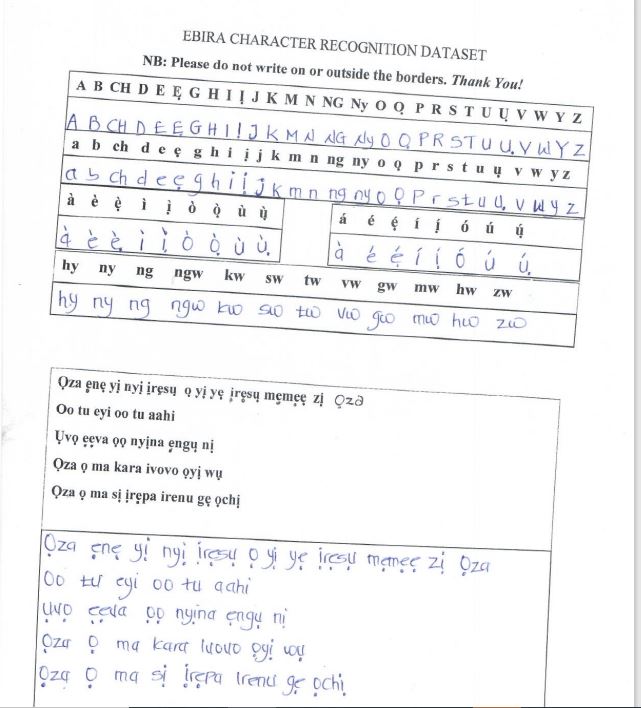 EBIRA CHARACTER RECOGNITION DATASET
NB: Please do not write on or outside the borders. Thank You!
A B CH D E Ẹ G H I Ị J K M N NG Ny O Ọ P R S T U Ụ V W Y Z
A B CH D E Ẹ G H I Ị J K M N NG Ny O Ọ P R S T U Ụ V W Y Z
a b ch d e ẹ g h i ị j k m n ng ny o ọ p r s t u ụ v w y z
a b ch d e ẹ g h i ị j k m n ng ny o ọ p r s t u ụ v w y z
à è ẹ̀ ì ị̀ ò ọ̀ ù ụ̀
à è ẹ̀ ì ị̀ ò ọ̀ ù ụ̀
á é ẹ́ í ị́ ó ú ụ́
à é ẹ́ í ị́ ó ú ụ́
hy ny ng ngw kw sw tw vw gw mw hw zw
hy ny ng ngw kw sw tw vw gw mw hw zw
Ọza ẹnẹ yị nyị ịrẹsụ ọ yị yẹ ịrẹsụ mẹmẹẹ zị Ọza
Oo tu eyi oo tu aahi
Ụvọ ẹẹva ọọ nyịna ẹngụ nị
Ọza ọ ma kara ivovo ọyị wụ
Ọza ọ ma sị ịrẹpa irenu gẹ ọchị
Ọza ẹnẹ yị nyị ịrẹsụ ọ yị yẹ ịrẹsụ mẹmẹẹ zị Ọza
Oo tu eyi oo tu aahi
Ụvọ ẹẹva ọọ nyịna ẹngụ nị
Ọza Ọ ma kara ivovo ọyị wụ
Ọza Ọ ma sị ịrẹpa irenu gẹ ọchị